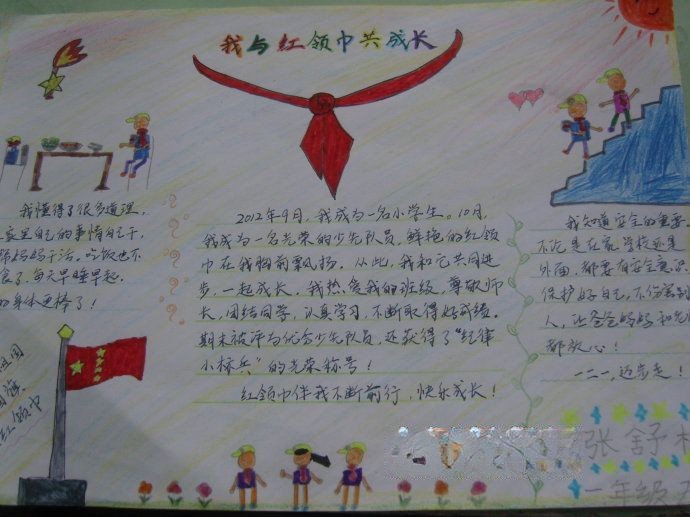 我与红领巾共成长
我懂得了很多道理,
家里自己的事情自己干,
妈妈干活。吃饭也不
食了。每天早睡早起,
身体更棒了!
国旗
红领巾
2012年9月,我成为一名小学生。10月,
我成为一名光荣的少先队员,鲜艳的红领
巾在我胸前飘扬。从此,我和它共同进
步,一起成长。我热爱我的班级,尊敬师
长,团结同学,认真学习,不断取得好成绩。
期末被评为优秀少先队员,还获得了“纪律
小标兵”的光荣称号!
红领巾伴我不断前行,快乐成长!
我知道安全的重要。
不论是在家、学校还是
外面,都要有安全意识。
保护好自己,不伤害别
人,让爸爸妈妈和老
都放心!
一二一,迈步走!
张舒
一年级